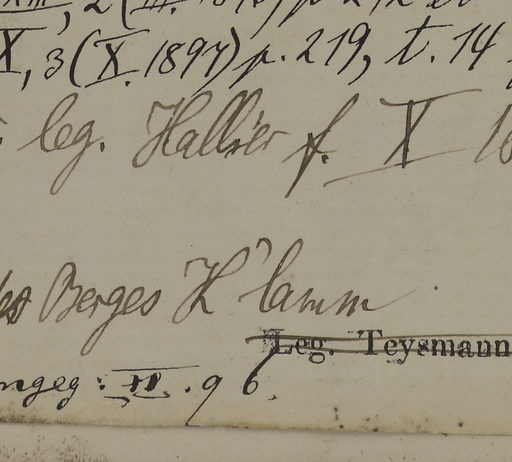 X, 3 (X. 1897) p. 219, t. 14
leg. Hallier f. X
Berges K'lamm
Leg. Teysmann
. 96.